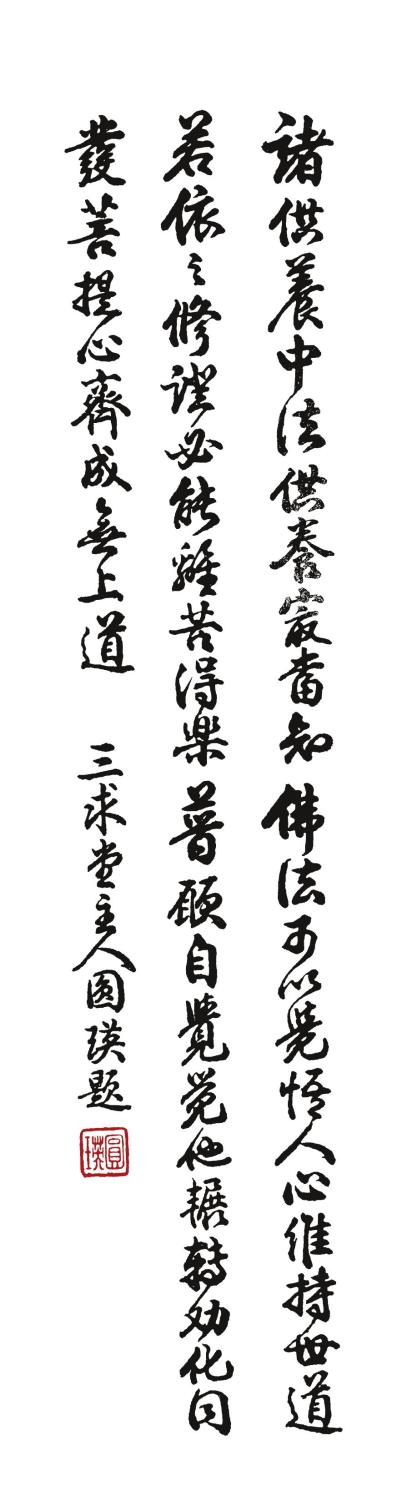 諸供養中法供養最當知佛法可以覺悟人心維持世道
若依之修證必能離苦得樂普願自覺覺他輾轉劝化同
發菩提心齊成無上道 三求堂主人圓瑛題
圓瑛